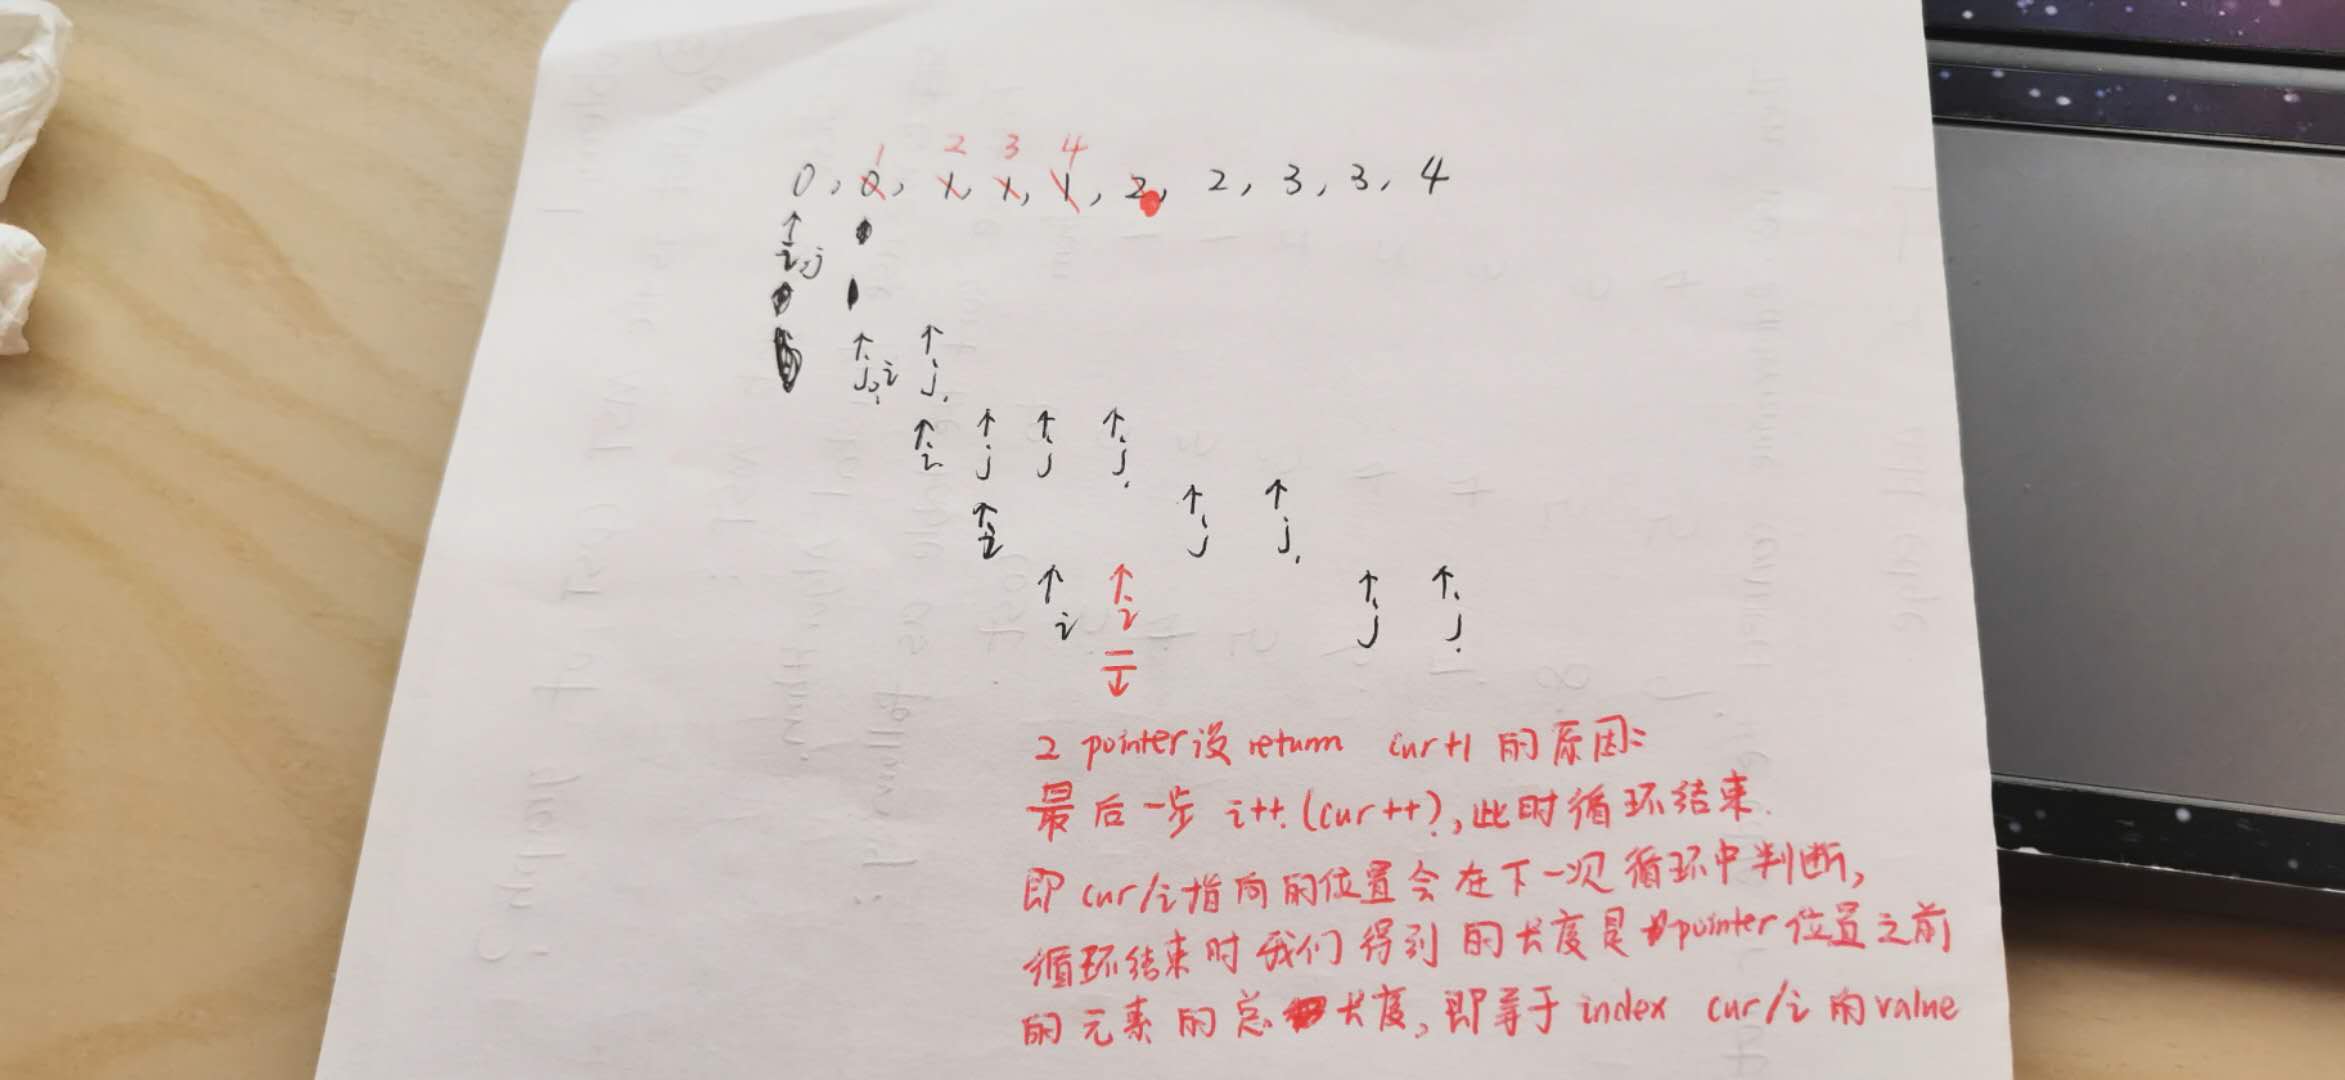 1 2 3 4
0, 0, 1, 1, 1, 2, 2, 3, 3, 4
i, j
j, i j
i j j j
i j j
i i j j
2 pointer没return cur+1 的原因:
最后一步 i++.(cur++), 此时循环结束.
即 cur/i指向的位置会在下一次循环中判断,
循环结束时我们得到的长度是 pointer位置之前
的元素的总长度, 即等于 index cur/i 的value